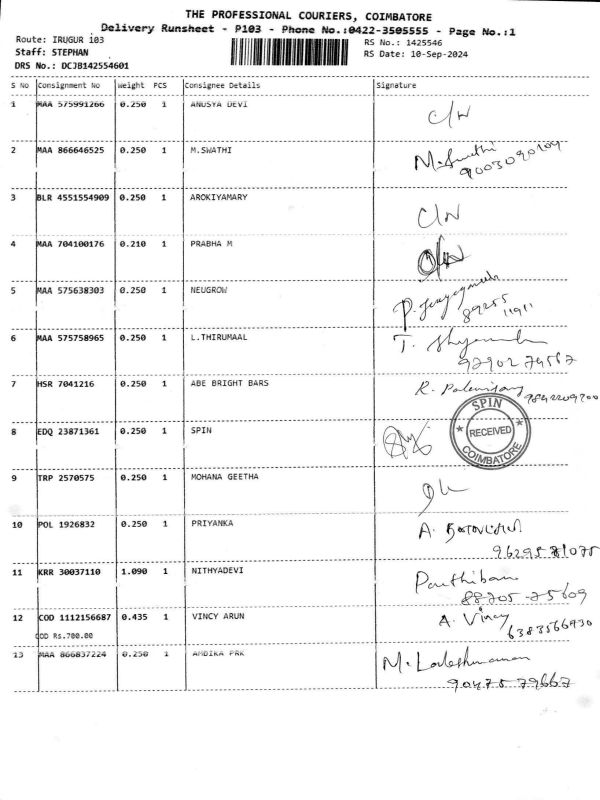 THE PROFESSIONAL COURIERS, COIMBATORE
Delivery Runsheet - P103 - Phone No.:0422-3505555 - Page No.:1
Route: IRUGUR 103
RS No.: 1425546
Staff: STEPHAN
RS Date: 10-Sep-2024
DRS No.: DCJB142554601
S No Consignment No Weight PCS Consignee Details Signature
1 MAA 575991266 0.250 1 ANUSYA DEVI C/N
2 MAA 866646525 0.250 1 M.SWATHI
9003090109
3 BLR 4551554909 0.250 1 AROKIYAMARY C/N
4 MAA 704100176 0.210 1 PRABHA M
5 MAA 575638303 0.250 1 NEUGROW P.
89255
11911
6 MAA 575758965 0.250 1 L.THIRUMAAL T.
7 HSR 7041216 0.250 1 ABE BRIGHT BARS R.
8 EDQ 23871361 0.250 1 SPIN
SPIN
RECEIVED
COIMBATORE
9 TRP 2570575 0.250 1 MOHANA GEETHA
10 POL 1926832 0.250 1 PRIYANKA A.
11 KRR 30037110 1.090 1 NITHYADEVI Parthiban
88705-75609
12 COD 1112156687 0.435 1 VINCY ARUN A. Vincy
6383566930
COD Rs.700.00
13 MAA 866837224 0.250 1 AMBIKA PRK M.
90475 79667